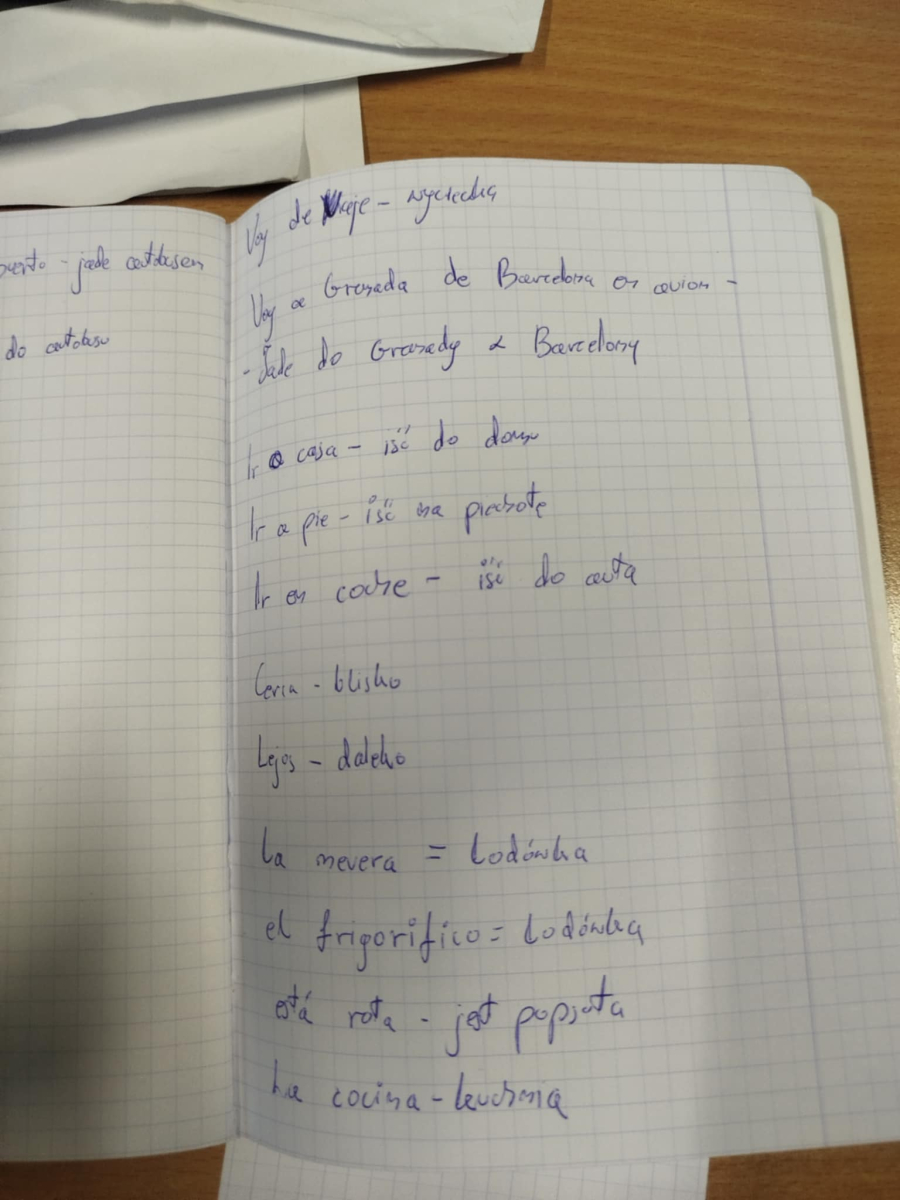 jade autobusem
do autobusu
Voy de Viaje - wycieczka
Voy a Granada de Barcelona en avion -
- Jade do Granady z Barcelony
Ir a casa - iść do domu
Ir a pie - iść na piechotę
Ir en coche - iść do auta
Cerca - blisko
Lejos - daleko
La nevera = Lodówka
el frigorifico = Lodówka
está rota - jest popsuta
La cocina - kuchnia